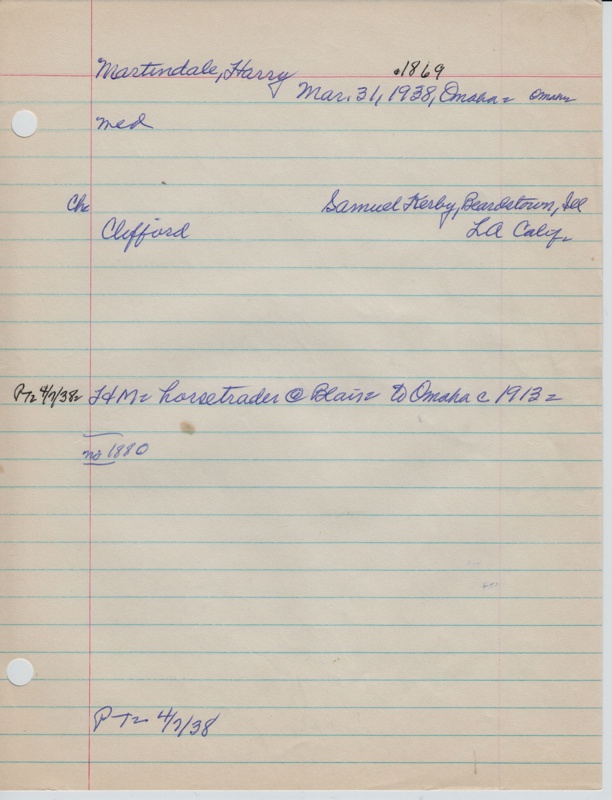 Martindale, Harry c1869
Mar. 31, 1938, Omaha= Omaha=
med
Ch Samuel Kerby, Beardstown, Ill
Clifford LA Calif=
PT= 4/7/38= HM= horsetrader @ Blair= to Omaha c 1913=
no 1880
PT= 4/7/38